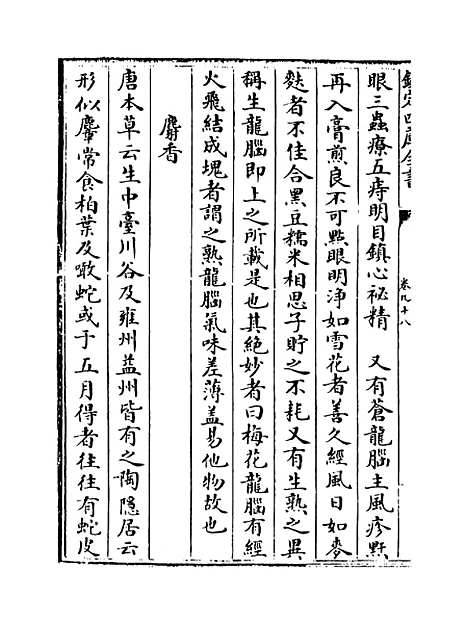 欽定四庫全書
卷九十八
眼三蟲療五痔明目鎮心祕精　又有蒼龍腦主風疹䵟
再入膏煎良不可點眼明淨如雪花者善久經風日如麥
麩者不佳合黑豆糯米相思子貯之不耗又有生熟之異
稱生龍腦即上之所載是也其絶妙者曰梅花龍腦有經
火飛結成塊者謂之熟龍腦氣味差薄蓋易他物故也
麝香
唐本草云生中臺川谷及雍州益州皆有之陶隱居云
形似麞常食柏葉及噉蛇或于五月得者往往有蛇皮